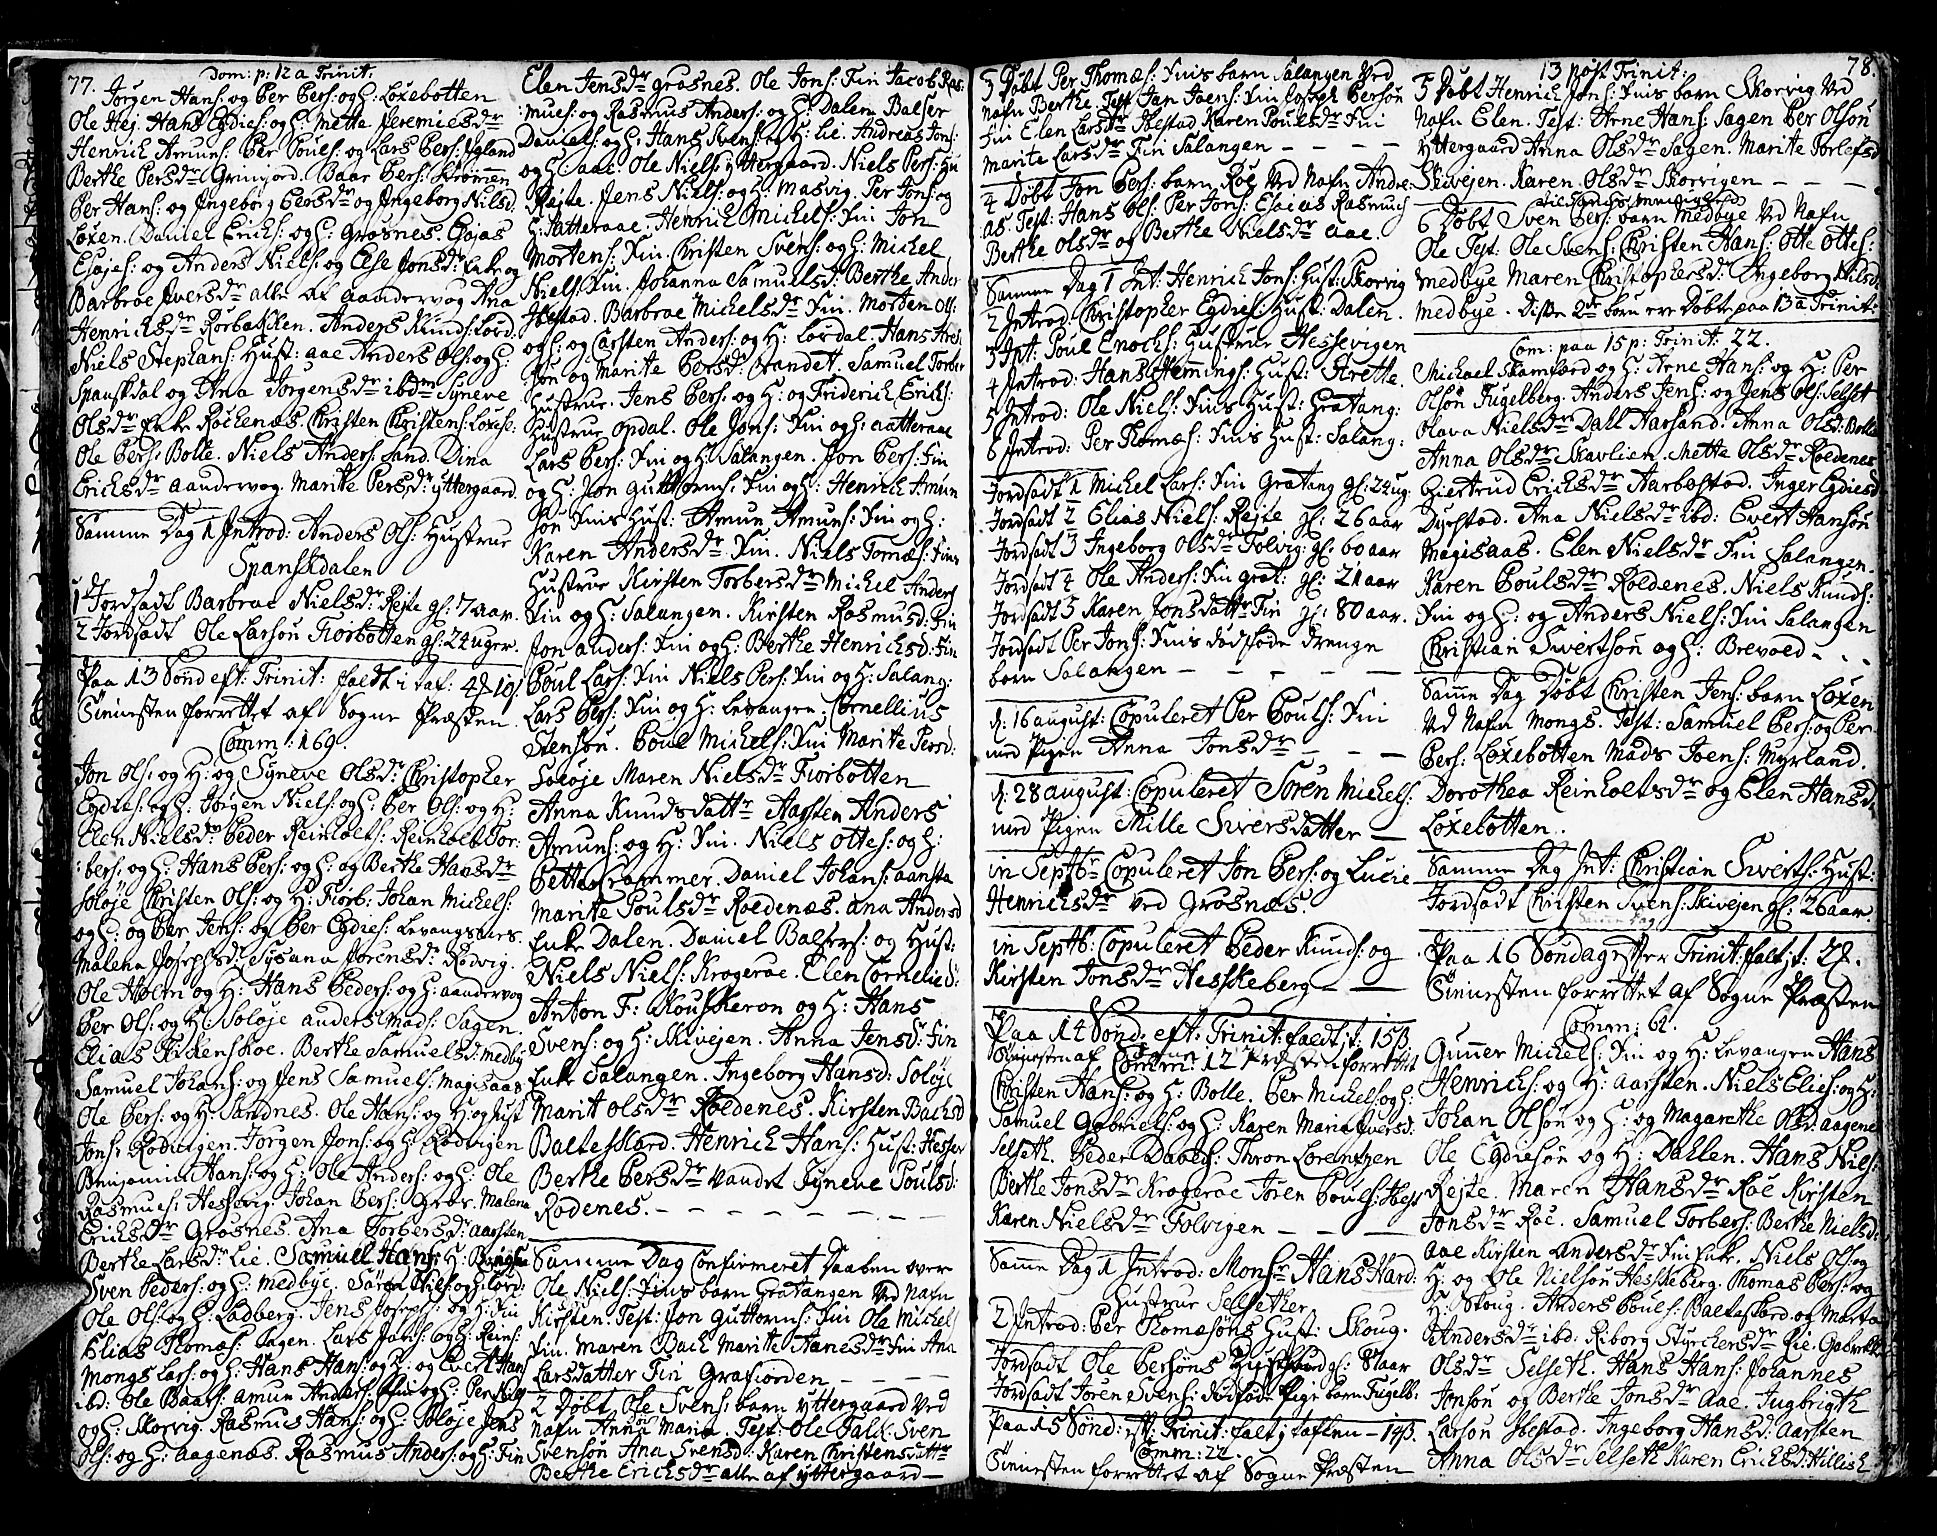 77. Dom: p: 12 a Trinit:
Jørgen Hans: og Per Pers: og H: Loxebotten
Ole Hej: Hans Egdies: og H: Mette Jeremiesdr
Henrich Amuns: Per Pouels: og Lars Pers:
Berthe Persdr Grimjord. Baar Pers: Strømmen
Per Hans: og Ingeborg Persdr og Ingeborg Nilsd:
Loxen. Daniel Erichs: og H: Grosnes. Esajas
Esajes: og Anders Niels: og Else Jonsdr Enke og
Barbroe Iversdr alle af aandervog Ana
Henrichsdr Rorbakken. Anders Knuds: Lørd:
Niels Stephans: Hust: aae Anders Ols: og H:
Spanskdal og Ana Jørgensdr ibdm Syneve
Olsdr Enke Rochenæs. Christen Christens: Loxes:
Ole Pers: Bolle. Niels Anders: Sand. Dina
Erichsdr aandervog. Marite Persdr yttergaard.
Samme Dag 1 Introd: Anders Ols: Hustrue
Spanskdalen
1 Jordsadt Barbroe Niels dr: Rejte gl: 7 aar.
2 Jordsadt Ole Larsøn Fiorbotten gl: 24 uger.
Paa 13 Sønd eft: Trinit: faldt i taf:
Tienesten forrettet af Sogne Præsten
Comm: 169.
Jon Ols: og H: og Syneve Olsdr: Christopher
Egdies: og H: Jørgen Niels: og H: Per Ols: og H:
Elen Nielsdr: Peder Reinholts: Reinholt Tor:
:bers: og H: Hans Pers: og H: og Berthe Hansdr
Soløje Christen Ols: og H: Fiorb: Johan Michels:
og H: og Per Jens: og Per Egdies: Levangsnæs.
Malena Josephsdr: Sysana Jorensdr: Rodvig.
Ole Holm og H: Hans Peders: og H: aandervog
Per Ols: og H: Soløje anders Mads: Sagen.
Elias Elchenskoe. Berthe Samuelsd: Medby
Samuel Johans: og Jens Samuels: Magisaas
Ole Pers: og H: Sandnes. Ole Hans: og H: og
Jons: Rodvigen. Jørgen Jons: og H: Rodvigen
Benjamin Hans: og H: Ole Anders: og H: Ole
Rasmues: Hessevig. Johan Pers: Grov. Malena
Erichsdr Grosnes. Ana Torbersdr: Aarsten
Berthe Larsdr: Lie. Samuel Hans: H:
Sven Peders: og H: Medbye. Søren Niels: og H: Lørd:
Ole Ols: og H: Ladberg. Jens Josephs: og H: Fin
Elias Thomas: Sagen. Lars Joens: og H: Reins:
Mongs Lars: og H: Hans Hans: og H: og Evert Hans
ibd: Ole Baars: Amun Anders: Fin og H: Per Niels
og H: Skorvig. Rasmus Hans: og H: Soløje Jens
Ols: og H: Aagenæs. Rasmus Anders: og H: Fin
Elen Jensdr Grosnes. Ole Jons: Fin Jacob Ras:
:mues: og Rasmus Anders: og H: Dalem Balser
Daniels: og H: Hans Svens: og H: Lie. Andreas Jons:
og H: aae. Ole Niels: yttergaard. Niels Pers: Hu
Rejte. Jens Niels: og H: Masvig. Per Jons: og
H: Fatteraae. Henrich Michels: Fin Jon
Mortens: Fin. Christen Svens: og H: Michel
Niels: Fin. Johanna Samuelsd: Berthe Ander
Ibestad. Barbroe Michelsdr Fin. Morden Ols:
og H: og Carsten Anders: og H: Lørdal. Hans Are
Jon og Marite Persd: Strandet. Samuel Torber
Hustrue. Jens Pers: og H: og Friderich Erichs:
Hustrue Opdal. Ole Jons: Fin og H: aatteraae
Lars Pers: Fin og H: Salangen. Jon Pers: Fin
og H: Jon Guttorms: Fin og H: Henrich Amun
Jon Finis Hust: Amun Amuns: Fin og H:
Karen Andersdr Fin. Niels Tomæs: Finis
Hustrue Kirsten Torbersdr: Michel Anders
Fin og H: Salangen. Kirsten Rasmusd: Fin
Jon anders: Fin og H: Berthe Henrichsd: Fin
Poul Lars: Fin Niels Pers: Fin og H: Salang:
Lars Pers: Fin og H: Levangen. Cornelius
Stensøn. Poul Michels: Fin Marite Persd:
Soløje Maren Nielsdr Fiorbotten
Anna Knudsdattr Aarsten Anders
Amuns: og H: Fin. Niels Ottes: og H:
Petter Crammer. Daniel Johans: aansta
Marite Poulsdr Roedenæs. Ana Andersd
Enke Dalen. Daniel Balsers: og Hust:
Niels Niels: Krogerae. Elen Cornelied:
Anton F: Kouskeron og H: Hans
Svens: og H: Skivejen. Anna Jensd: Fin
Enke Salangen. Ingeborg Hansd: Soløje
Marit Olsdr Roedenes. Kirsten Bachsd
Balteskard. Henrich Hans: Hust: Hesser
Berthe Persdr Vandet Syneve Poulsd:
Rodenes. – – – – – – –
Samme Dag Confirmeret Daaben over
Ole Niels: Finis barn Gratangen Ved Nafn
Kirsten. Test: Jon Guttorms: Fin Ole Michels
Fin. Maren Bach Marite Hanesdr Fin Ana
Larsdatter Fin Grafiorden – – – –
2 Døbt Ole Svens: barn yttergaard Ved
Nafn Anna Maria. Test: Ole Falk: Sven
Svensøn Ana Svensd: Karen Christensdattr
Berthe Erichsdr alle af yttergaard –
3 Døbt Per Thomæs: Finis barn Salangen Ved
Nafn Berthe. Test Jan Joens: Fin Joseph Persøn
Fin Elen Larsdr Ibestad Karen Poulsdr Fin
Marite Larsdr Fin Salangen – – – –
4 Døbt Jon Pers: barn Roe Ved Nafn Andre:
as. Test: Hans Ols: Per Jons: Esaias Rasmuch
Berthe Olsdr og Berthe Nielsdr aae.
Samme Dag 1 Int: Henrich Jons: Hust: Skorvig
2 Introd: Christopher Egdies: Hust: Dalen.
3 Int: Poul Enochs: Hustrue Hessevigen
4 Introd: Hans Hemmings: Hust: Strette.
5 Introd: Ole Niels: Finis Hust: Gratang:
6 Introd: Per Thomæs: Finis Hust: Salang:
Jordsadt 1 Michel Lars: Fin Gratang gl: 24 ug:
Jordsadt 2 Elias Niels: Rejte gl: 26 aar
Jordsadt 3 Ingeborg Olsdr Folvig: gl: 60 aar
Jordsadt 4 Ole Anders: Fin Grat: gl: 21 aar
Jordsadt 5 Karen Jonsdattr Fin gl: 80 aar.
Jordsadt Per Jons: Finis dødføde Drenge
barn Salangen – – – – –
d: 16 august: Copuleret Per Pouls: Fin
med Pigen Anna Jonsdr – – –
d: 28 august: Copuleret Søren Michels:
med Pigen Mille Siversdatter –
in Septbr Copuleret Jon Pers: og Lucie
Henrichsdr Ved Grosnæs.
in Septb: Copuleret Peder Knuds: og
Kirsten Jonsdr Hesskeberg – –
Paa 14 Sønd: eft: Trinit: faldt i t: 15 β.
Tienesten af Sogne Præsten forrettet
Comm: 12
Christen Hans: og H: Bolle. Per Michels: og H:
Samuel Gabriels: og H: Karen Maria Iversd:
Selseth. Peder Davids: Thron Lorentzen
Berthe Jonsdr Krogerae Joren Pouls: Ibest
Karen Nielsdr Folvigen – – – –
Samme Dag 1 Introd: Monsr Hans Hard:
Hustrue Selsether
2 Introd: Per Thomæsøns Hust: Skoug.
Jordsadt Ole Persøns gl: 87 aar
Jordsadt Joren Svens: dødføde Pige barn Fugelb:
Paa 15 Sønd: eft: Trinit: falt i taflen – 14 β.
Comm: 22
Tienesten forrettet af Sogne Præsten
78.
13 post Trinit:
5 Døbt Henrich Jons: Finis barn Skorvig Ved
Nafn Elen. Test: Arne Hans: Sagen Per Olsøn
Yttergaard Anna Olsdr Sagen. Marite Torlefsd
Skivejen. Karen Olsdr Skorvigen – – –
6 Døbt Sven Pers: barn Medbye Ved Nafn
Ole Test: Ole Svens: Christen Hans: Otte Ottes:
Medbye Maren Christophersdr Ingeborg Nilsd
Medbye. Disse 2de børn ere Døbte paa 13 a Trinit:
Com: paa 15 p: Trinit: 22.
Michael Skamfærd og H: Arne Hans: og H: Per
Olsøn Fugelberg. Anders Jens: og Jens Ols: Selset
Olava Nielsdr Dall Harsand. Anna Olsd: Bolle
Anna Olsdr Skavlien. Mette Olsdr Roedenes
Giertrud Erichsdr Aarbostad. Inger Egdiesd
Dyrstad. Ana Nielsdr ibd: Evert Hansøn
Magisaas. Elen Nielsdr Fin Salangen.
Karen Poulsdr Roldenes. Niels Knuds:
Fin og H: og Anders Niels: Fin Salangen
Christian Sivertsøn og H: Brevoed – – –
Samme Dag Døbt Christen Jens: barn Loxen
Ved Nafn Mongs. Test: Samuel Pers: og Per
Pers: Loxebotten Mads Joens: Myrland.
Dorothea Reinholtsdr og Elen Hansd:
Loxebotten.
Samme Dag Int: Christian Siverts: Hust:
Jordsadt Christen Svens: Skivejen gl: 26 aar
Samme Dag
Paa 16 Søndag efter Trinit: falt i t:
Tienesten forrettet af Sogne Præsten
Comm: 62.
Gunner Michels: Fin og H: Levangen Hans
Henrichs: og H: Aarsten. Niels Elies: og H:
Johan Olsøn og H: og Magarethe Olsd: aagenes
Ole Egdiesøn og H: Dahlen. Hans Niels:
Rejte. Maren Hansdr Roe Kirsten
Jonsdr Roe. Samuel Torbers: Berthe Nielsd:
Aae Kirsten Andersdr Fin Enke. Niels Ols: og
H: og Ole Nielsøn Hesskeberg. Thomas Pers: og
H: Skoug. Anders Pouls: Balteskard og Marta
Andersdr ibd: Riborg Styrchersdr Lie. Gabriel
Olsdr Selseth. Hans Hans: Johannes
Jonsøn og Berthe Jonsdr Aae. Ingbrigth
Larsøn Ibestad. Ingeborg Hansd: Aarsten
Anna Olsdr Selseth Karen Erichsd: Hillish